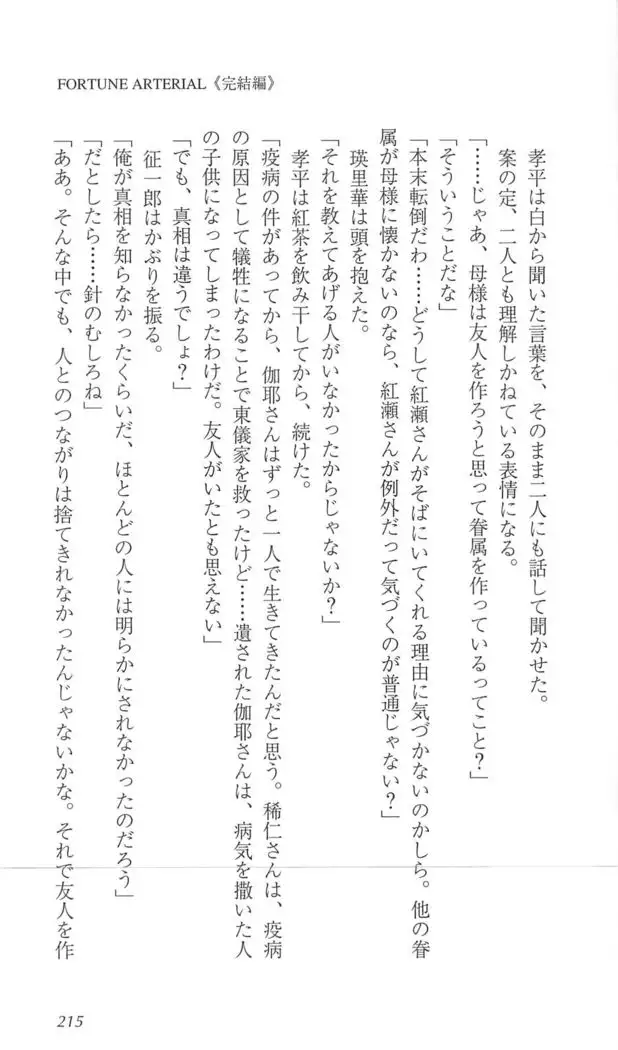 FORTUNE ARTERIAL《完結編》
　孝平は白から聞いた言葉を、そのまま二人にも話して聞かせた。
　案の定、二人とも理解しかねている表情になる。
「……じゃあ、母様は友人を作ろうと思って眷属を作っているってこと？」
「そういうことだな」
「本末転倒だわ……どうして紅瀬さんがそばにいてくれる理由に気づかないのかしら。他の眷
属が母様に懐かないのなら、紅瀬さんが例外だって気づくのが普通じゃない？」
　瑛里華は頭を抱えた。
「それを教えてあげる人がいなかったからじゃないか？」
　孝平は紅茶を飲み干してから、続けた。
「疫病の件があってから、伽耶さんはずっと一人で生きてきたんだと思う。稀仁さんは、疫病
の原因として犠牲になることで東儀家を救ったけど……遺された伽耶さんは、病気を撒いた人
の子供になってしまったわけだ。友人がいたとも思えない」
「でも、真相は違うでしょ？」
　征一郎はかぶりを振る。
「俺が真相を知らなかったくらいだ、ほとんどの人には明らかにされなかったのだろう」
「だとしたら……針のむしろね」
「ああ。そんな中でも、人とのつながりは捨てきれなかったんじゃないかな。それで友人を作
215